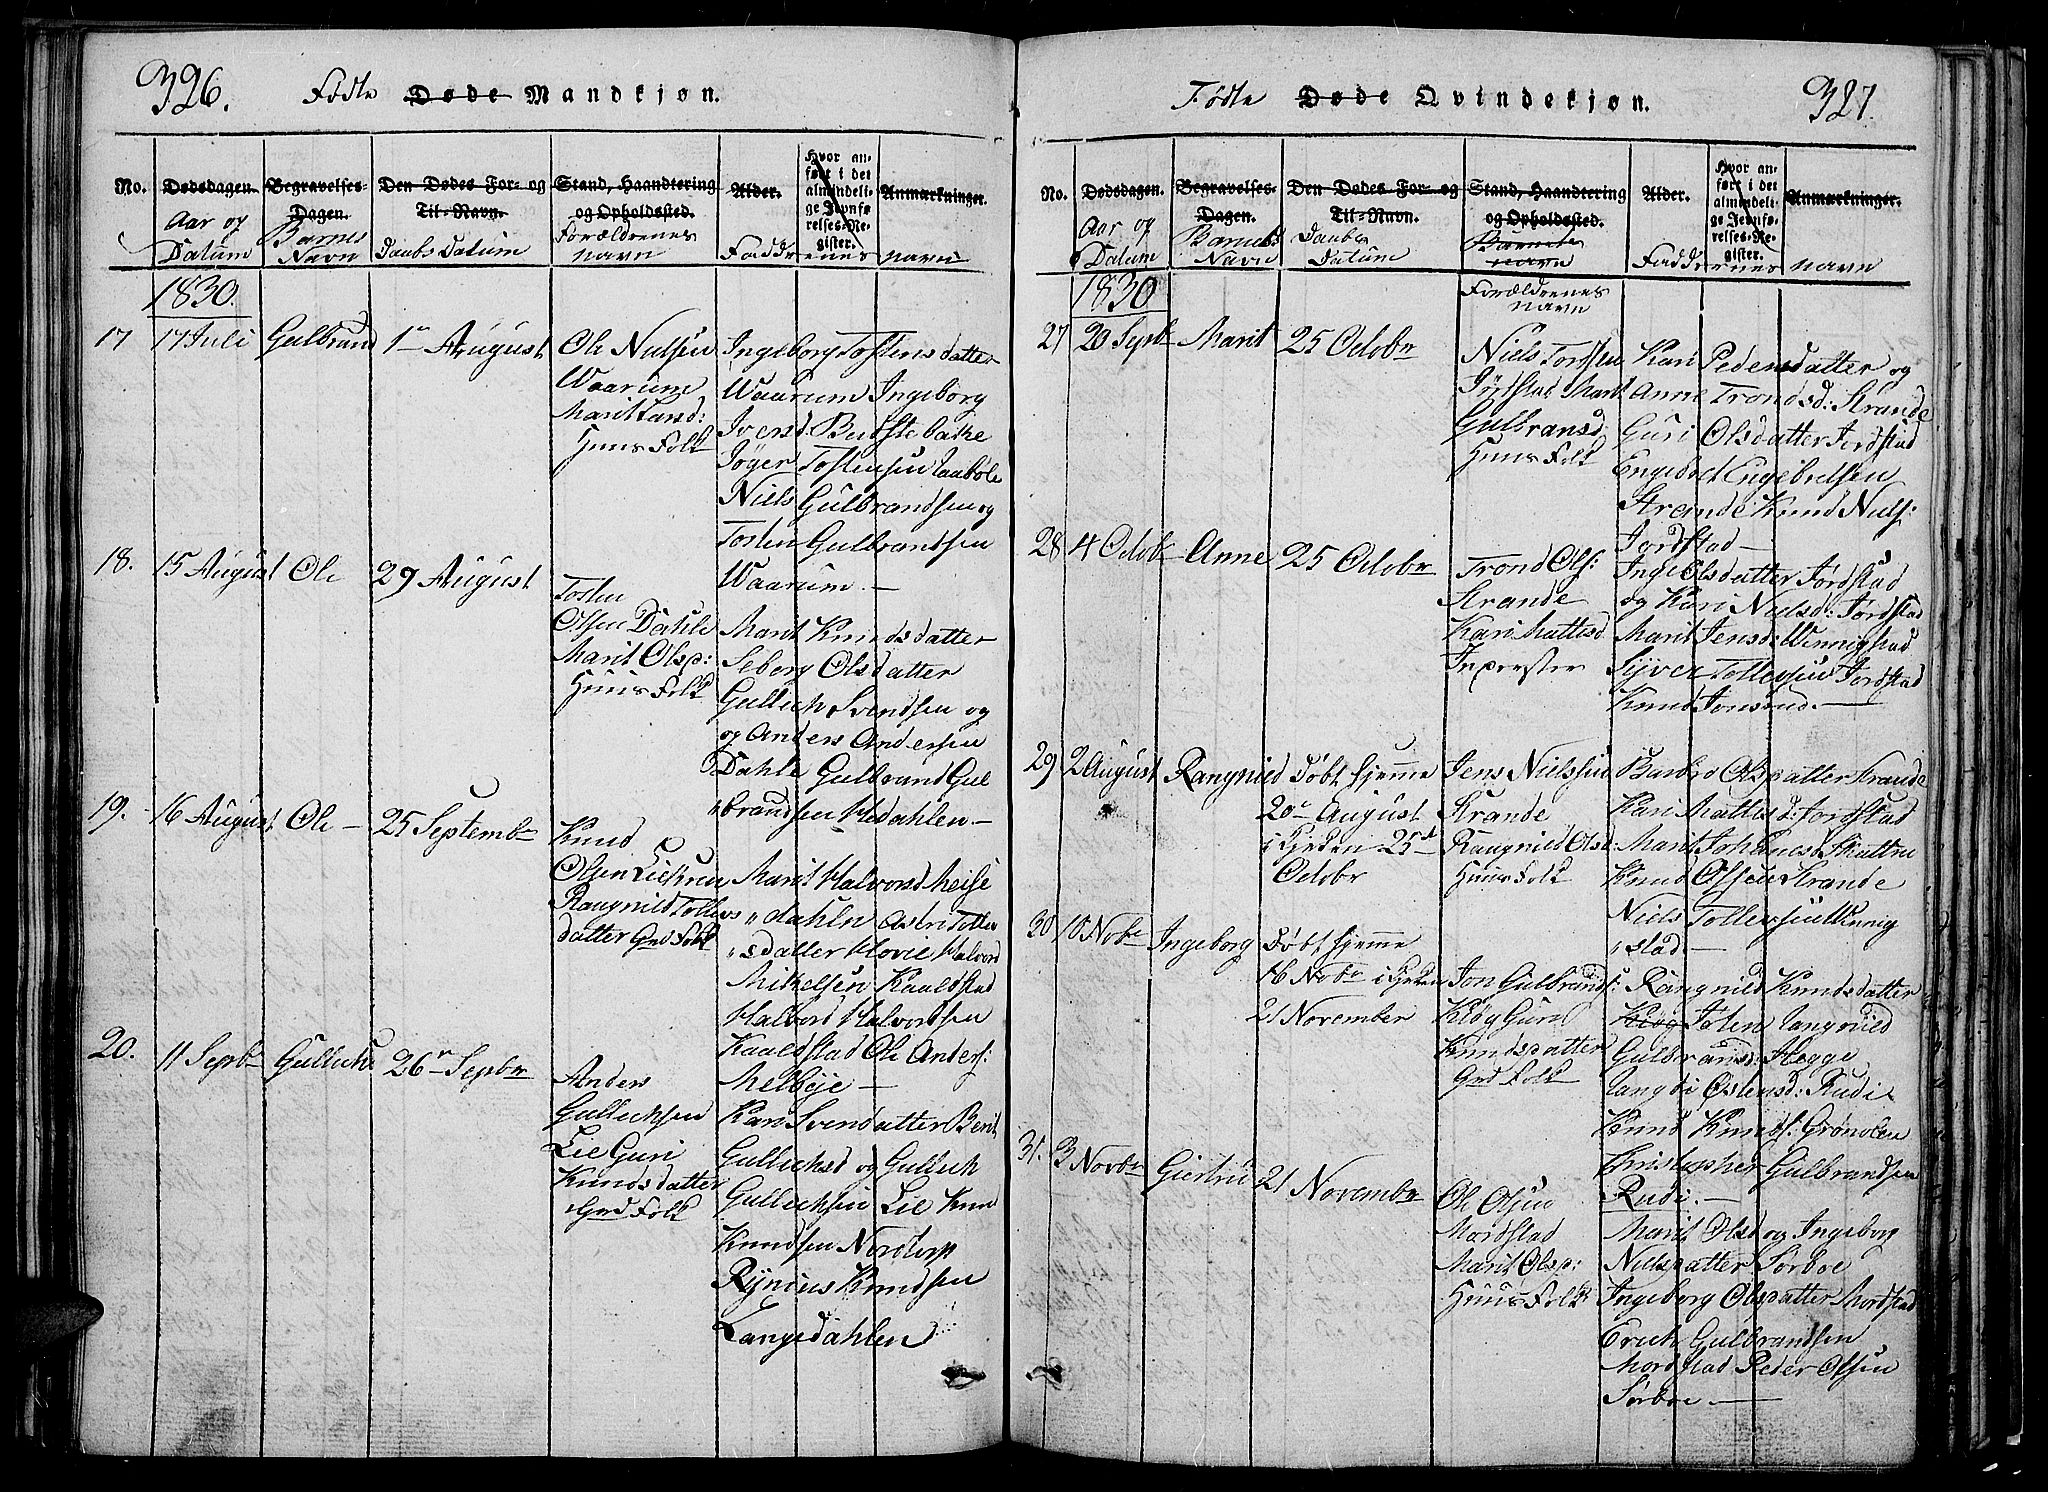 326.
Fødte Døde Mandkjøn.
No.
Dødsdagen.
Aar og
Datum
Begravelses-
Dagen.
Barnets
Navn
Den Dødes For- og
Til-Navn.
Daabs Datum
Stand, Haandtering
og Opholdssted.
Forældrenes
navn
Alder.
Hvor an-
ført i det
almindeli-
ge Jevnfø-
relses-Re-
gister.
Anmærkninger.
Faddrenes navn
1830.
17 17 Juli Gulbrand 1ste August
Ole Nielsen
Waarum
Marit
Huus Folk
Ingeborg Tostensdatter
Waarum Ingeborg
Iversd. Budstebakke
Tostensen
Niels Gulbrandsen og
Tosten Gulbrandsen
Waarum.—
18. 15 August Ole 29 August
Tosten
Olsen Dahle
Marit Olsd:
Huus Folk
Marit Knudsdatter
Seborg Olsdatter
Gullich Svendsen og
og Anders Andersen
Dahle Gulbrand Gul
"brandsen Hedahlen—
19. 16 August Ole — 25 Septembr
Knud
Olsen
Rangnild Tollevs
datter Grd Folk
Marit Halvorsd
"dahln Astri Tollev
"sdatter Hovie Halvord
Mikelsen Kaaldstad
Halvord Halvordsen
Kaaldstad Ole Anders:
Melbÿe —
20. 11 Sepbr Gullich 26n Sepbr
Anders
Gullichsen
Lie Guri
Knudsdatter
Grd Folk
Kari Svendatter Berit
Gullichsd og Gullich
Gullichsen Lie Knud
Knudsen Nordtorp
Knudsen
Langedahlen
327.
Fødte Døde Qvindekjøn.
No.
Dødsdagen.
Aar og
Datum
Begravelses-
Dagen.
Barnets
Navn
Den Dødes For- og
Til-Navn.
Daabs
Datum
Stand, Haandtering
og Opholdssted.
Barnets
navn
Forældrenes
navn
Alder.
Hvor an-
ført i det
almindeli-
ge Jevnfø-
relses-Re-
gister.
Anmærkninger.
Faddrenes navn
1830
27 20 Sepbr Marit 25 Octobr
Niels Tordsen
Jørdstad Marit
Gulbransd:
Huus Folk
Kari Pedersdatter og
Anne Trondsd: Strande
Guri Olsdatter Jordstad
Engebret Engebretsen
Strande Knud Niels:
Jordstad—
28 4 Octobr Anne 25 Octobr
Trond Ols:
Strande
Kari Mattisd
Inderster
Inge Olsdatter Jordstad
og Kari Nielsd: Jørdstad
Marit Jensd: Wennigstad
Syver Tollefsen Jordstad
Knud Jonsrud.—
29 2 August Rangnild Døbt hjemme
20de August
i Kjerken 25de
Octobr
Jens Nielssen
Strande
Rangnild Olsd
Huus Folk
Barbro Olsdatter Strande
Kari Mattisd: Jordstad
Marit Johannesd Skattru
Knud Olsen Strande
Niels Tollefsen Wennig
"stad.—
30 10 Nobr Ingeborg Døbt hjemme
16 Nobr i Kjerken
21 November
Jon Gulbrands:
Kløg Guri
Knudsdatter
Grd Folk
Rangnild Knudsdatter
Kløg Joten Rangnild
Gulbransd: Hegge
Rangdi Østensd: Rudi
Knud Knuds: Grønolen
Christopher Gulbrandsen
Rudi.—
31. 3 Novbr Giertrud 21 Novembr
Ole Olsen
Mordstad
Marit Olsd:
Huus Folk
Marit Olsd og Ingeborg
Nielsdatter Sørboe
Ingeborg Olsdatter Mordstad
Erich Gulbrandsen
Mordstad Peder Olsen
Sørboe —